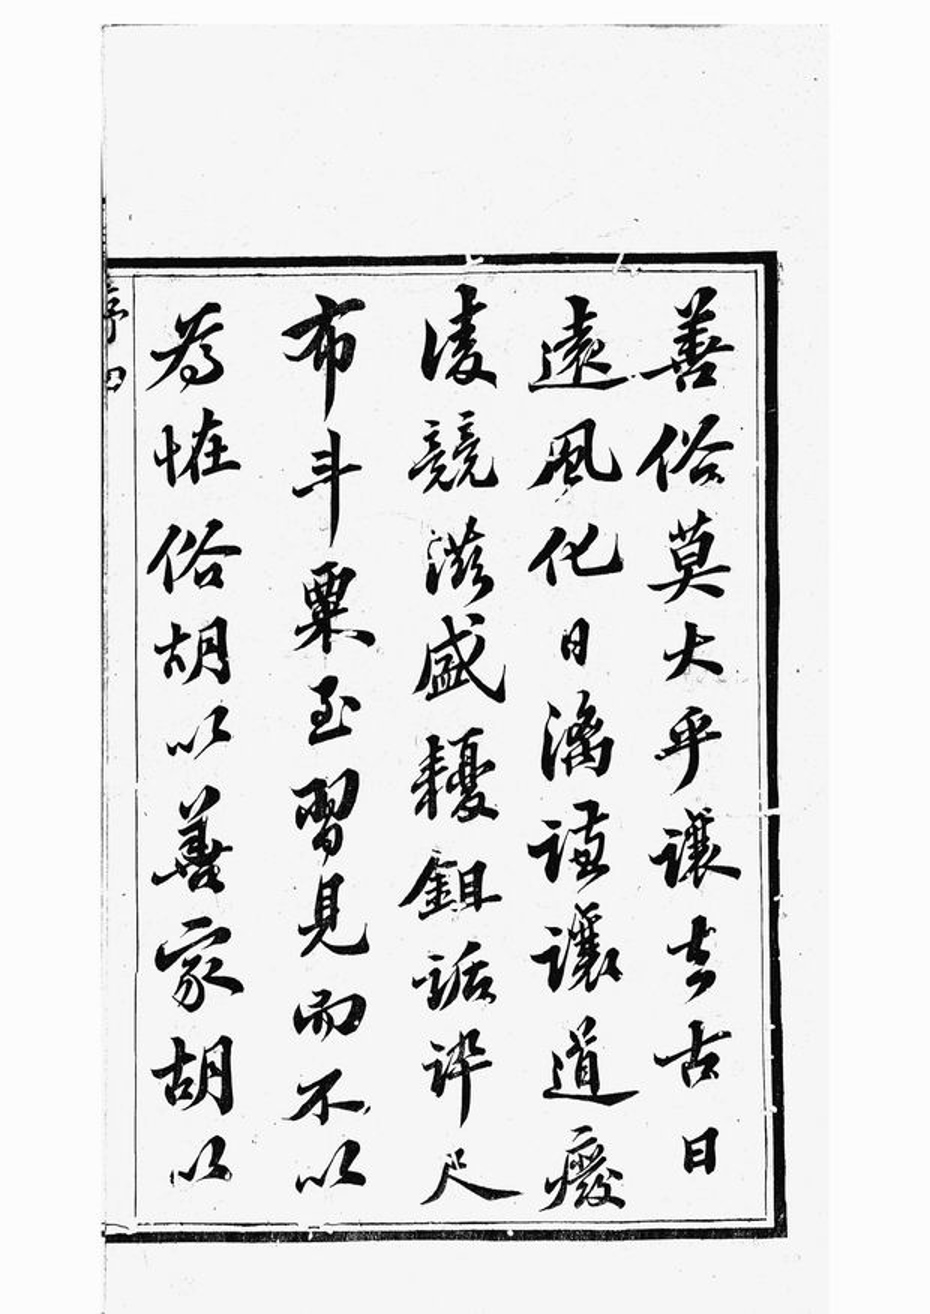 善俗莫大乎讓去古日
遠風化日漓謙讓道廢
凌競滋盛耰鉏詬誶尺
布斗粟至習見而不以
為怪俗胡以善家胡以
序 四